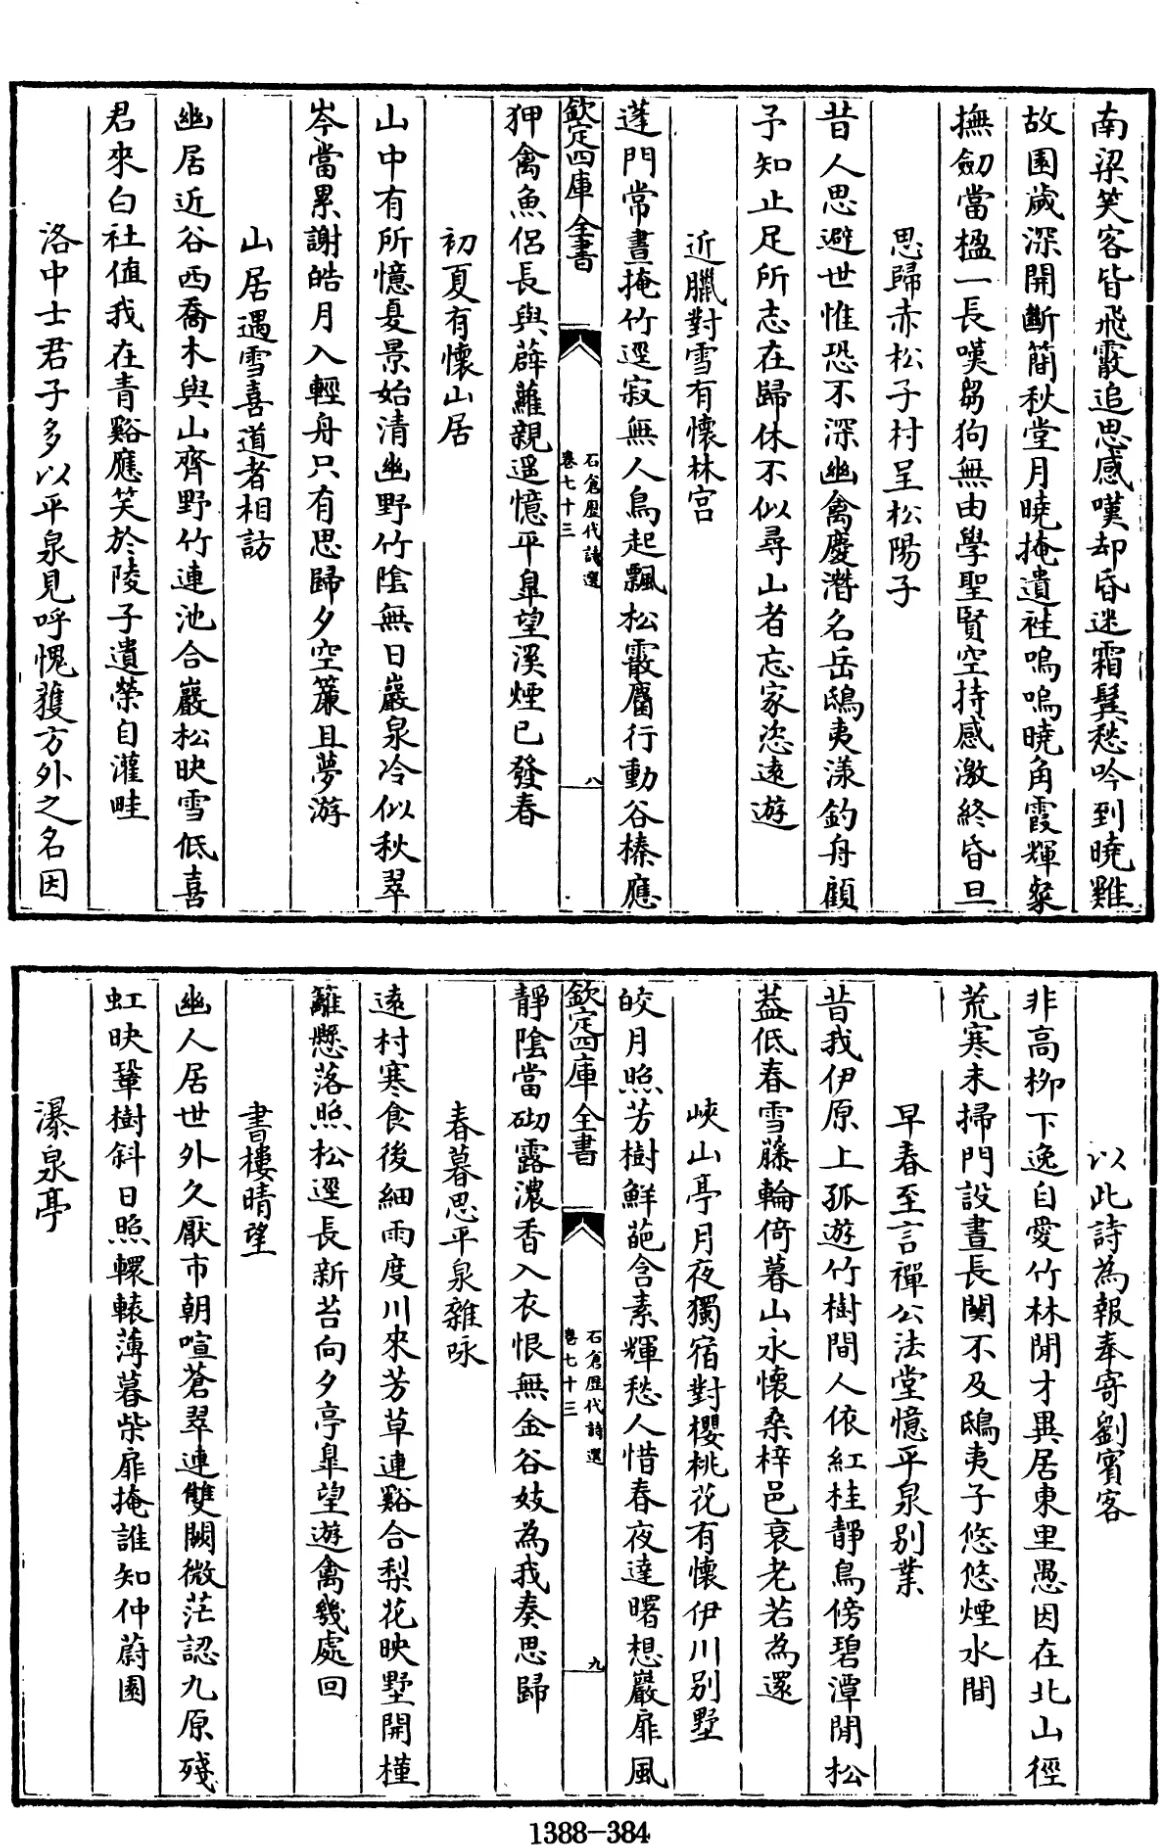 南梁笑客皆飛霰追思感嘆却昏迷霜鬢愁吟到曉雞
故園歲深開斷簡秋堂月曉掩遺袿嗚嗚曉角霞輝粲
撫劒當楹一長嘆芻狗無由學聖賢空持感激終昏旦
思歸赤松子村呈松陽子
昔人思避世惟恐不深幽禽慶潛名岳鴟夷漾釣舟顧
予知止足所志在歸休不似尋山者忘家恣遠遊
近臘對雪有懷林宫
蓬門常晝掩竹逕寂無人鳥起飄松霰麕行動谷榛應
欽定四庫全書
石倉歷代詩選
卷七十三
八
狎禽魚侣長與薜蘿親遥憶平臯望溪煙已發春
初夏有懷山居
山中有所憶夏景始清幽野竹陰無日巖泉冷似秋翠
岑當累謝皓月入輕舟只有思歸夕空簾且夢游
山居遇雪喜道者相訪
幽居近谷西喬木與山齊野竹連池合巖松映雪低喜
君來白社值我在青谿應笑於陵子遺榮自灌畦
洛中士君子多以平泉見呼愧獲方外之名因
以此詩為報奉寄劉賓客
非高柳下逸自愛竹林閒才異居東里愚因在北山徑
荒寒未掃門設晝長關不及鴟夷子悠悠煙水間
早春至言禪公法堂憶平泉别業
昔我伊原上孤遊竹樹間人依紅桂靜鳥傍碧潭閒松
葢低春雪藤輪倚暮山永懷桑梓邑衰老若為還
峽山亭月夜獨宿對櫻桃花有懷伊川别墅
皎月照芳樹鮮葩含素輝愁人惜春夜達曙想巖扉風
欽定四庫全書
石倉歷代詩選
卷七十三
九
靜陰當砌露濃香入衣恨無金谷妓為我奏思歸
春暮思平泉雜咏
遠村寒食後細雨度川來芳草連谿合梨花映墅開槿
籬懸落照松逕長新苔向夕亭臯望遊禽幾處回
書樓晴望
幽人居世外久厭市朝喧蒼翠連雙闕微茫認九原殘
虹映鞏樹斜日照轘轅薄暮柴扉掩誰知仲蔚園
瀑泉亭
1388-384